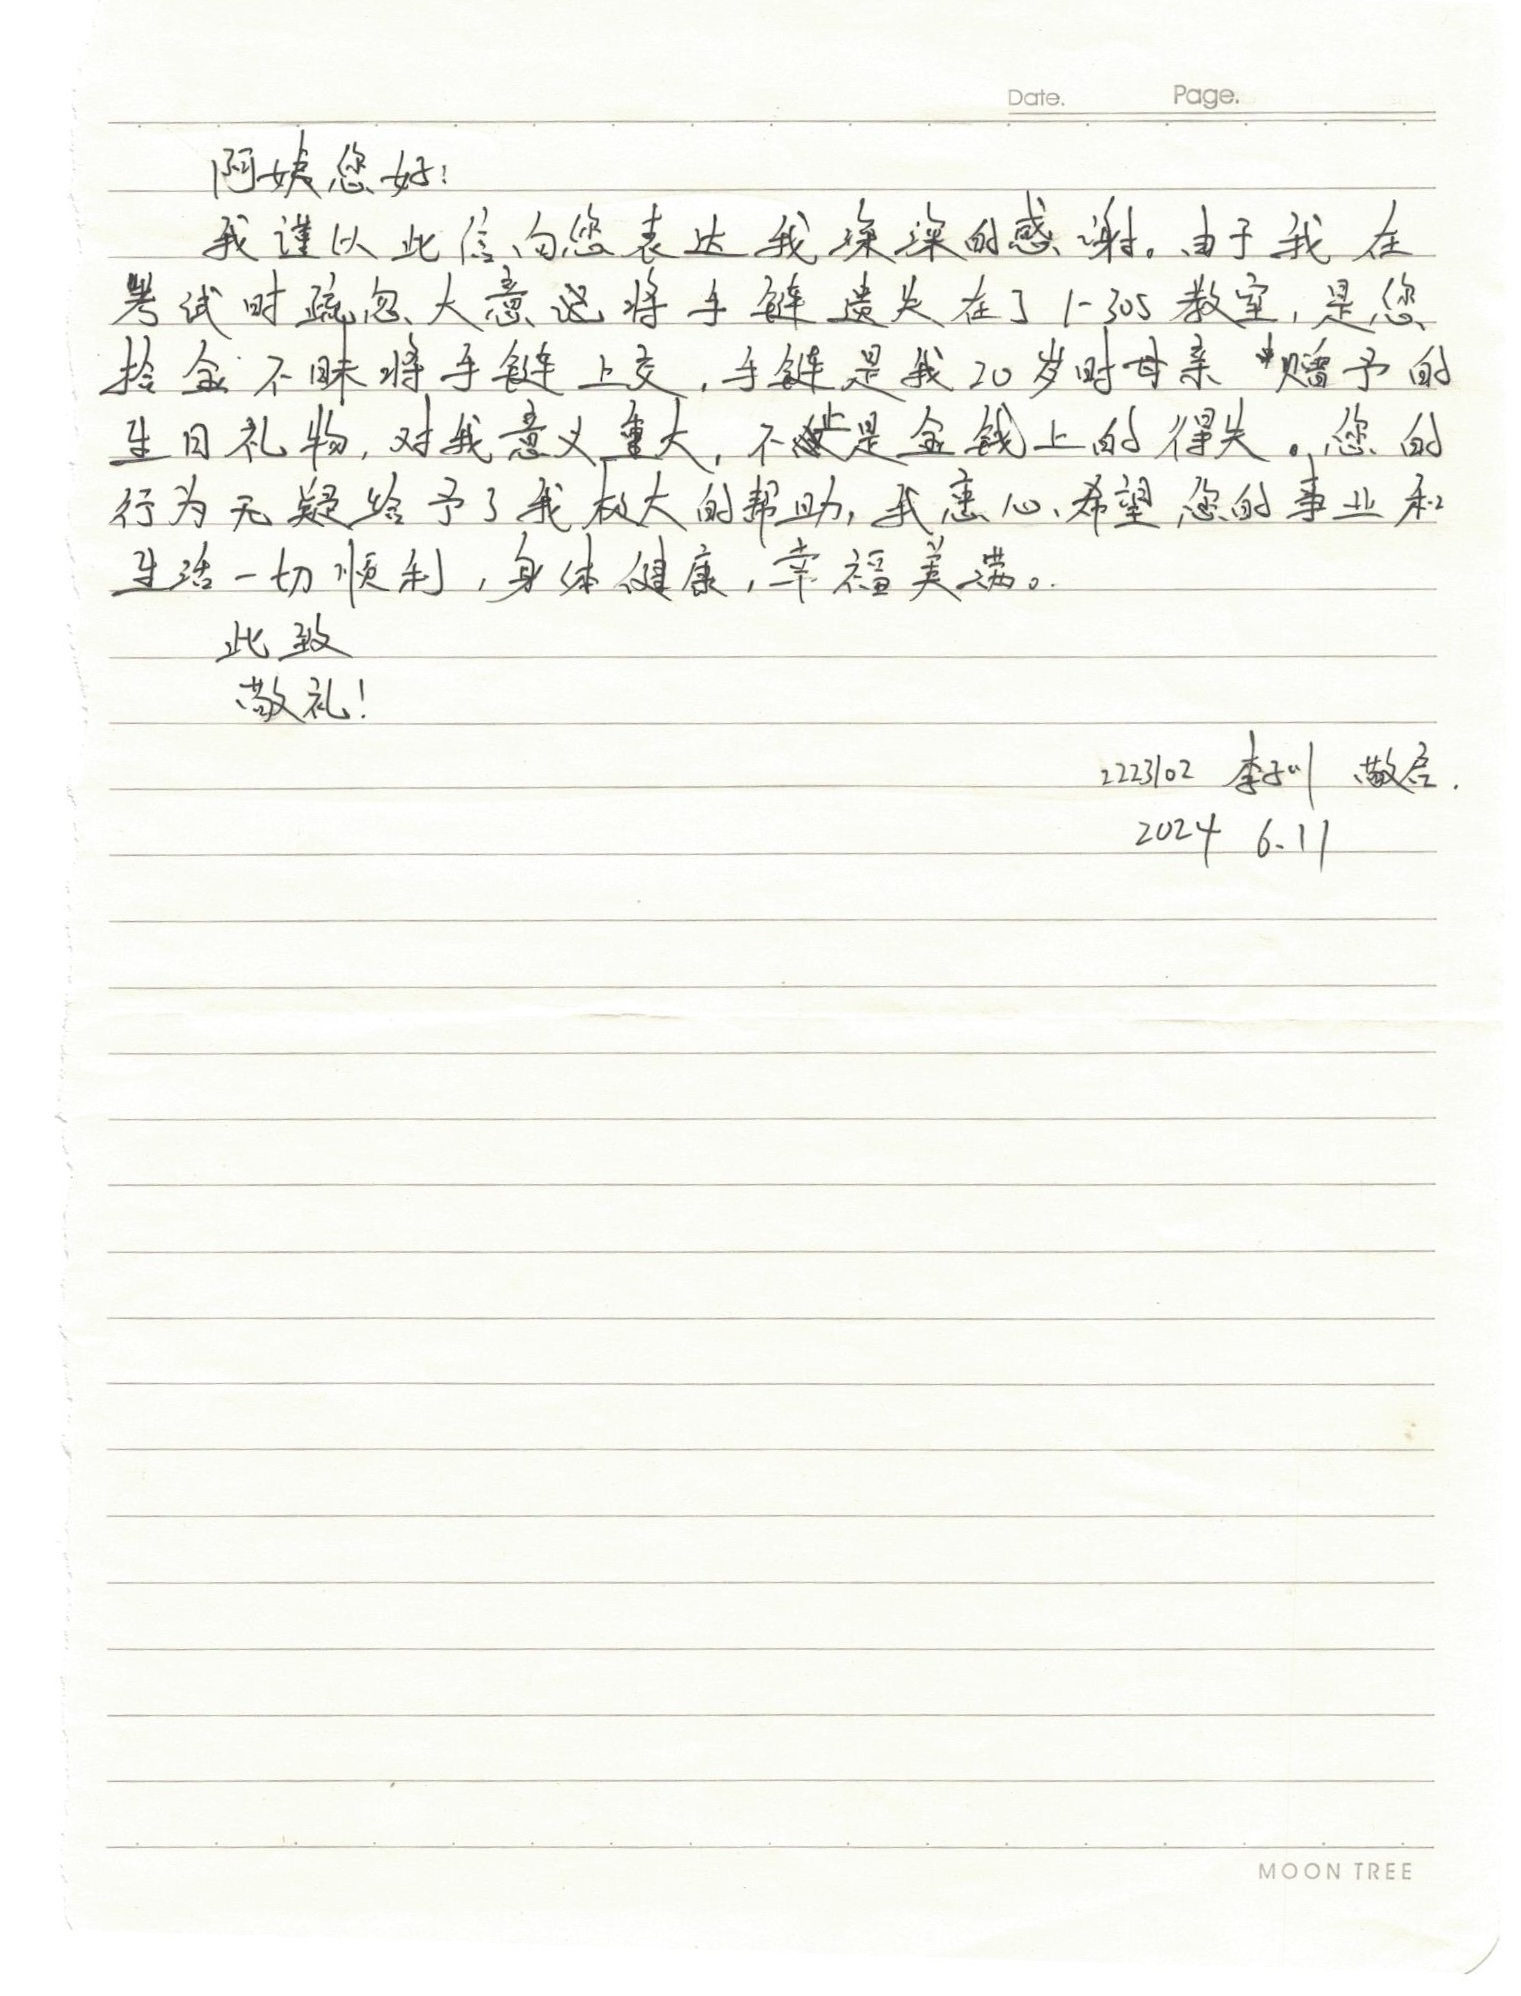 Date.
Page.
阿姨您好!
我谨以此信向您表达我深深的感谢。由于我在
考试时疏忽大意将手链遗失在了1-305教室,是您
拾金不昧将手链上交,手链是我20岁时母亲赠予的
生日礼物,对我意义重大,不止是金钱上的得失。您的
行为无疑给予了我极大的帮助,我衷心希望您的事业和
生活一切顺利,身体健康,幸福美满。
此致
敬礼!
2223102 李 敬启.
2024 6.11
MOON TREE